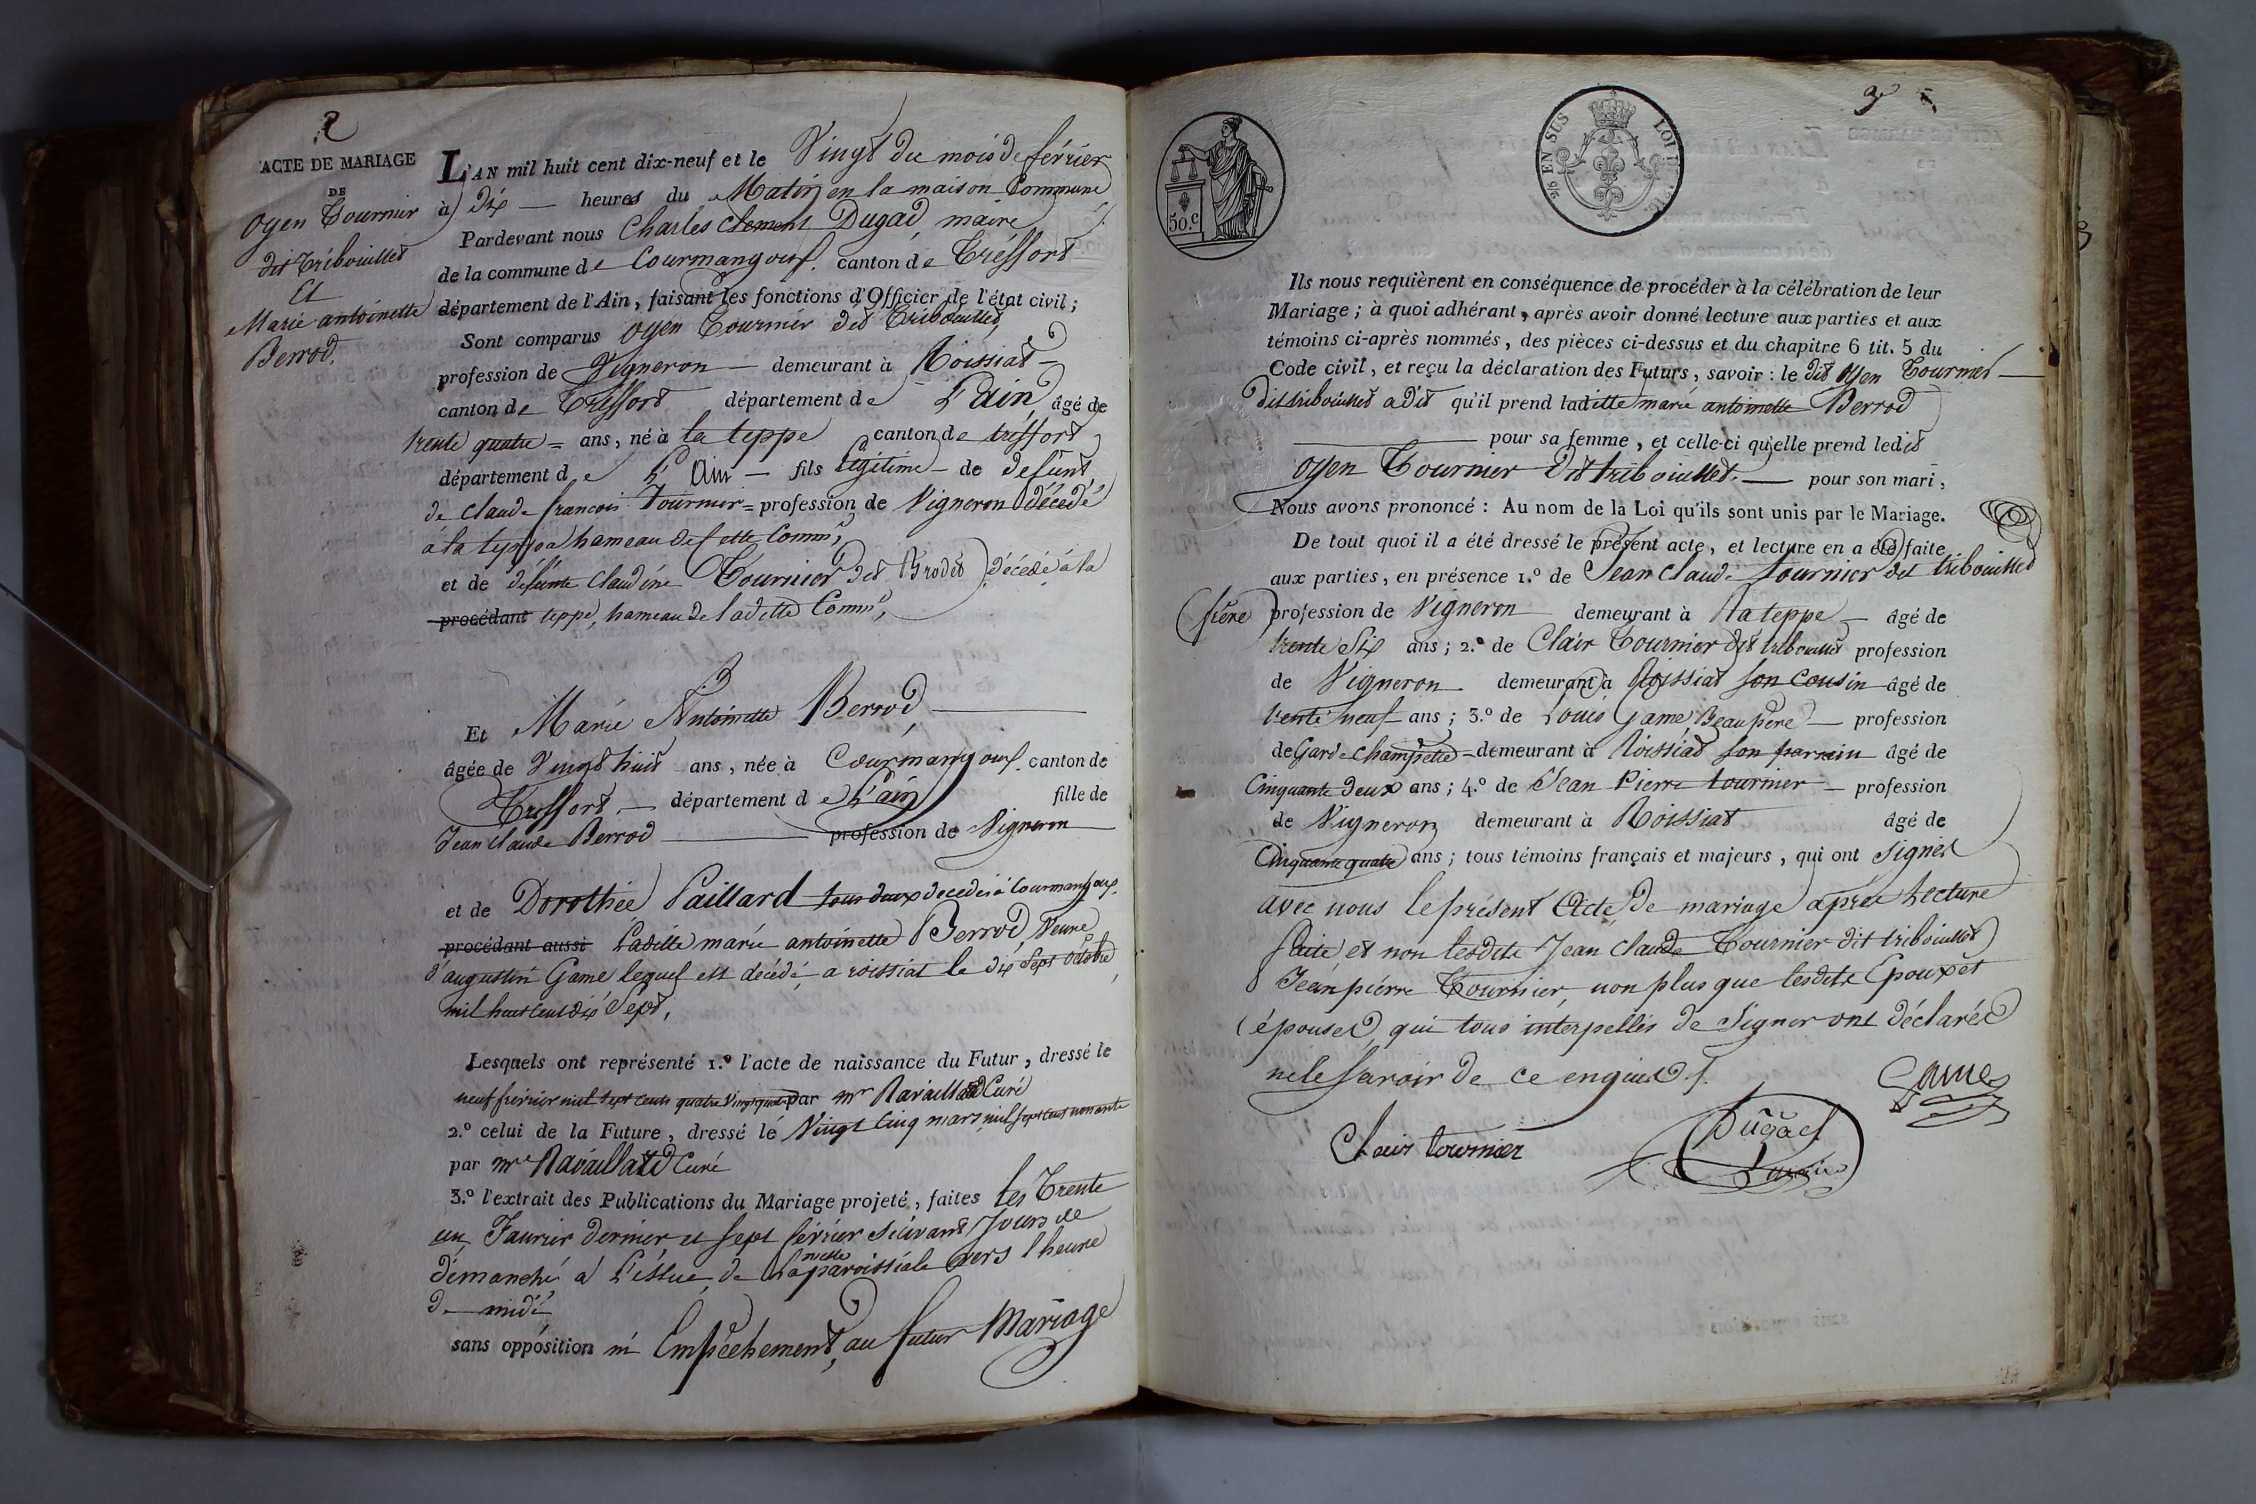 2
ACTE DE MARIAGE
DE
Oyen Tournier
dit Tribouillet
Et
Marie antoinette
Berrod.
L'AN mil huit cent dix-neuf et le Vingt du mois de février
à dix — heures du Matin en la maison Commune
Pardevant nous Charles Clement Dugad, maire
de la commune de Courmangoux. canton de Tréffort
département de l'Ain, faisant les fonctions d'Officier de l'état civil;
Sont comparus Oyen Tournier dit Tribouillet
profession de Vigneron — demeurant à Roissiat —
canton de Treffort département de L'ain âgé de
trente quatre = ans, né à la teppe canton de treffort
département de L'Ain — fils légitime — de defunt
de claude françois Tournier = profession de Vigneron décédé
à la teppe hameau de cette Commne,
et de défunte Claudine Tournier dit Brodet décédé à la
procédant teppe, hameau de laditte Commne,
Et Marie Antoinette Berrod, —
âgée de Vingt huit ans, née à Courmangoux. canton de
Treffort, — département de L'ain fille de
Jean Claude Berrod — profession de Vigneron —
et de Dorothée Paillard tous deux décédés à Courmangoux.
procédant aussi Laditte marie antoinette Berrod, Veuve
d'augustin Game lequel est décédé, a roissiat le dix Sept Octobre,
mil huit Cent dix Sept,
Lesquels ont représenté 1.º l'acte de naissance du Futur, dressé le
neuf février mil Sept Cents quatre Vingt quatre par mr Ravaillard Curé
2.º celui de la Future, dressé le Vingt Cinq mars mil sept cent nonante
par mr Ravaillard Curé
3.º l'extrait des Publications du Mariage projeté, faites les Trente
un Janvier dernier et Sept février Suivant Jours de
démanche à L'issue de la messe paroissiale vers l'heure
de midi
sans opposition ni Empêchement, au futur Mariage
50.c
EN SUS
LOI DE
3
Ils nous requièrent en conséquence de procéder à la célébration de leur
Mariage; à quoi adhérant, après avoir donné lecture aux parties et aux
témoins ci-après nommés, des pièces ci-dessus et du chapitre 6 tit. 5 du
Code civil, et reçu la déclaration des Futurs, savoir: le dit Oyen Tournier —
dit tribouillet a dit qu'il prend laditte marie antoinette Berrod
— pour sa femme, et celle-ci qu'elle prend ledit
Oyen Tournier dit tribouillet. — pour son mari,
Nous avons prononcé: Au nom de la Loi qu'ils sont unis par le Mariage.
De tout quoi il a été dressé le présent acte, et lecture en a été faite
aux parties, en présence 1.º de Jean Claude tournier dit tribouillet
frère profession de Vigneron demeurant à la teppe — âgé de
trente Six ans; 2.º de Clair Tournier dit tribouillet profession
de Vigneron demeurant à Roissiat son cousin âgé de
trente neuf ans; 3.º de Louis Game Beaupère — profession
de Garde champêtre = demeurant à Roissiat son parrain âgé de
Cinquante deux ans; 4.º de Jean Pierre tournier — profession
de Vigneron demeurant à Roissiat âgé de
Cinquante quatre ans; tous témoins français et majeurs, qui ont Signés
avec nous le présent Acte de mariage après Lecture
faite et non lesdits Jean Claude Tournier dit tribouillet
Jean pierre Tournier, non plus que lesdits Epoux et
épouse, qui tous interpellés de Signer ont déclarés
ne le Savoir de ce enquis.
Game
Clair tournier
Dugad
maire